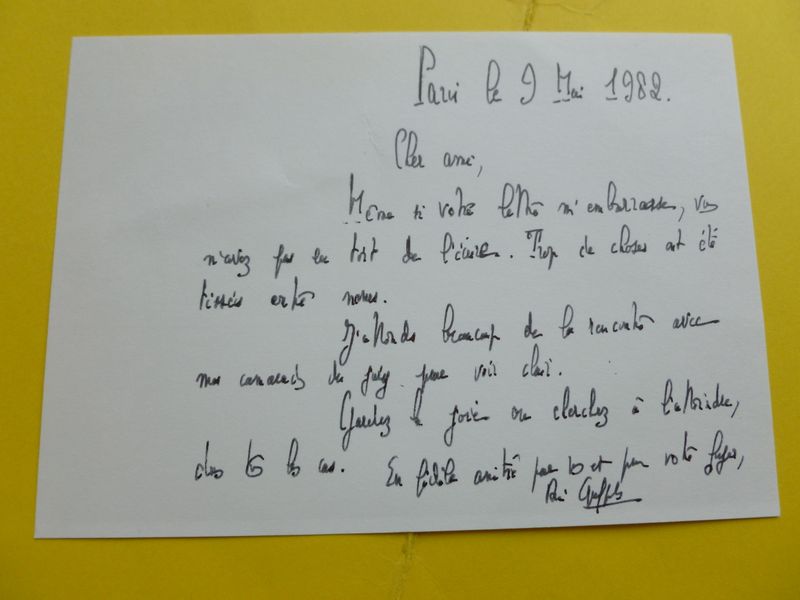 Paris le 9 Mai 1982.
Cher ami,
Même si votre lettre m'embarrasse, vous
n'avez pas eu tort de l'écrire. Trop de choses ont été
tissées entre nous.
J'attends beaucoup de la rencontre avec
mes camarades du jury pour voir clair.
Gardez la joie ou cherchez à l'atteindre,
dans ts les cas. En fidèle amitié pour vs et pour votre foyer,